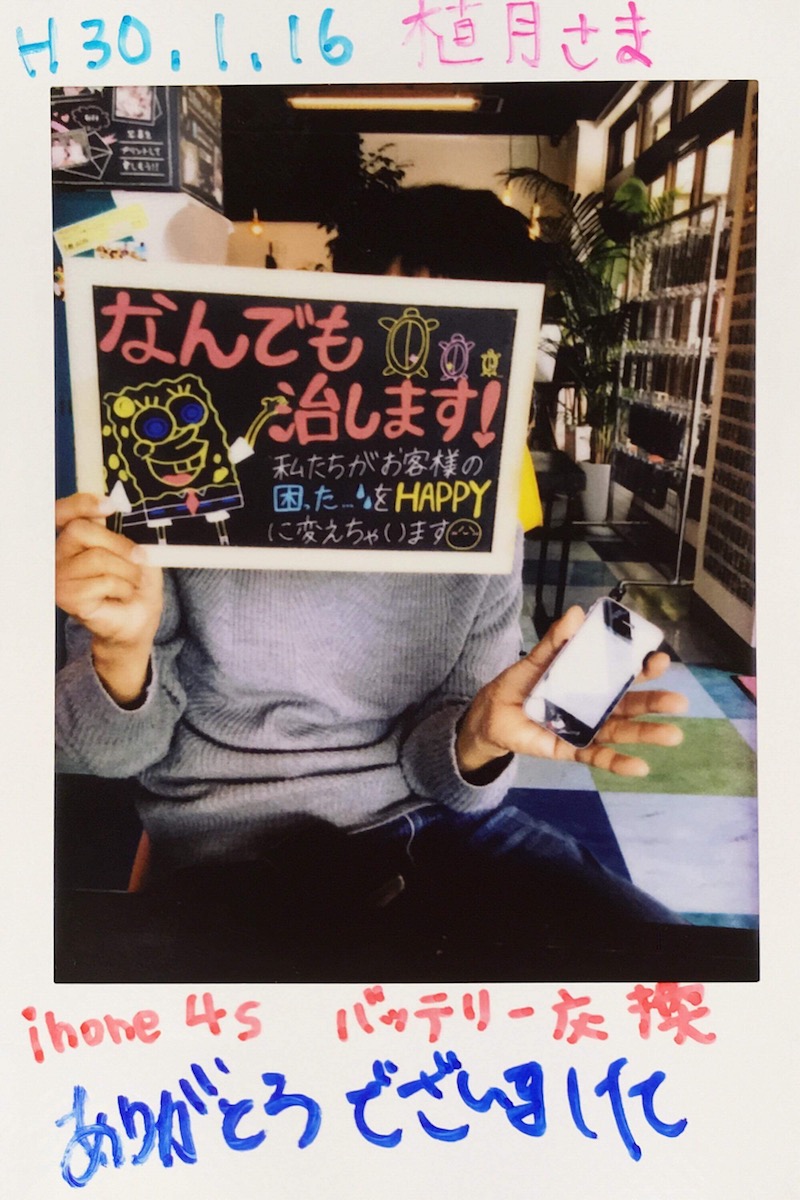 H30.1.16 植月さま
お写真を
プリントして
楽しもう!!
なんでも
治します!
私たちがお客様の
困った...をHAPPY
に変えちゃいます
ihone 4s バッテリー交換
ありがとうございました